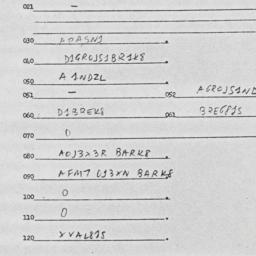 021 -
030 AOASN1
040 D1GROJS1BR1K8
050 A1NDZL
051 - 052 AGROJS1ND
060 D13OEK8 061 3REG81S
070 0
080 AOJ3X3R BARK8
090 AFM7 UJ3XN BARK8
100 0
110 0
120 XVAL81S